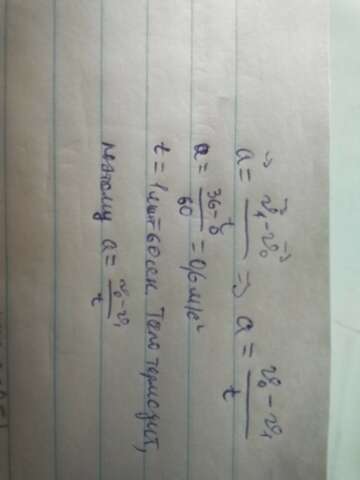 a⃗ = (v⃗₁ - v⃗₀)/t ⇒ a = (v₀ - v₁)/t
a = (36 - 0)/60 = 0,6 м/с²
t = 1 мин = 60 сек. Тело тормозит,
поэтому a = (v₀ - v₁)/t